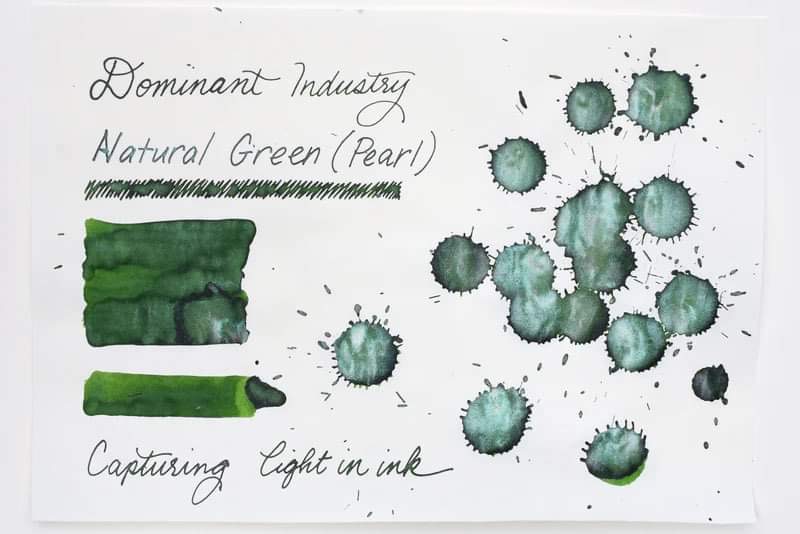 Dominant Industry
Natural Green (Pearl)
Capturing light in ink